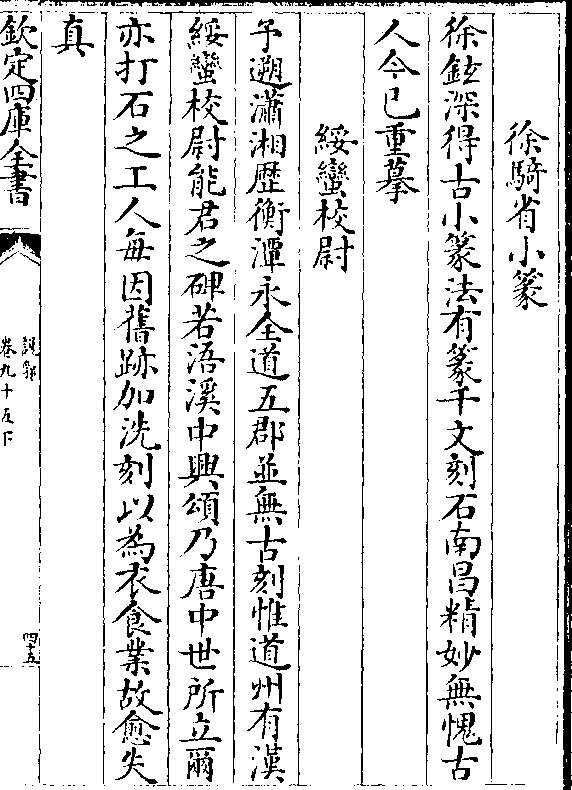 徐騎省小篆
徐鉉深得古小篆法有篆千文刻石南昌精妙無愧古
人今已重摹
綏蠻校尉
予遡瀟湘歴衡潭永全道五郡並無古刻惟道州有漢
綏蠻校尉熊君之碑若浯溪中興頌乃唐中世所立爾
亦打石之工人毎因舊跡加洗刻以為衣食業故愈失
真
欽定四庫全書
說郛
卷九十五下
四十五